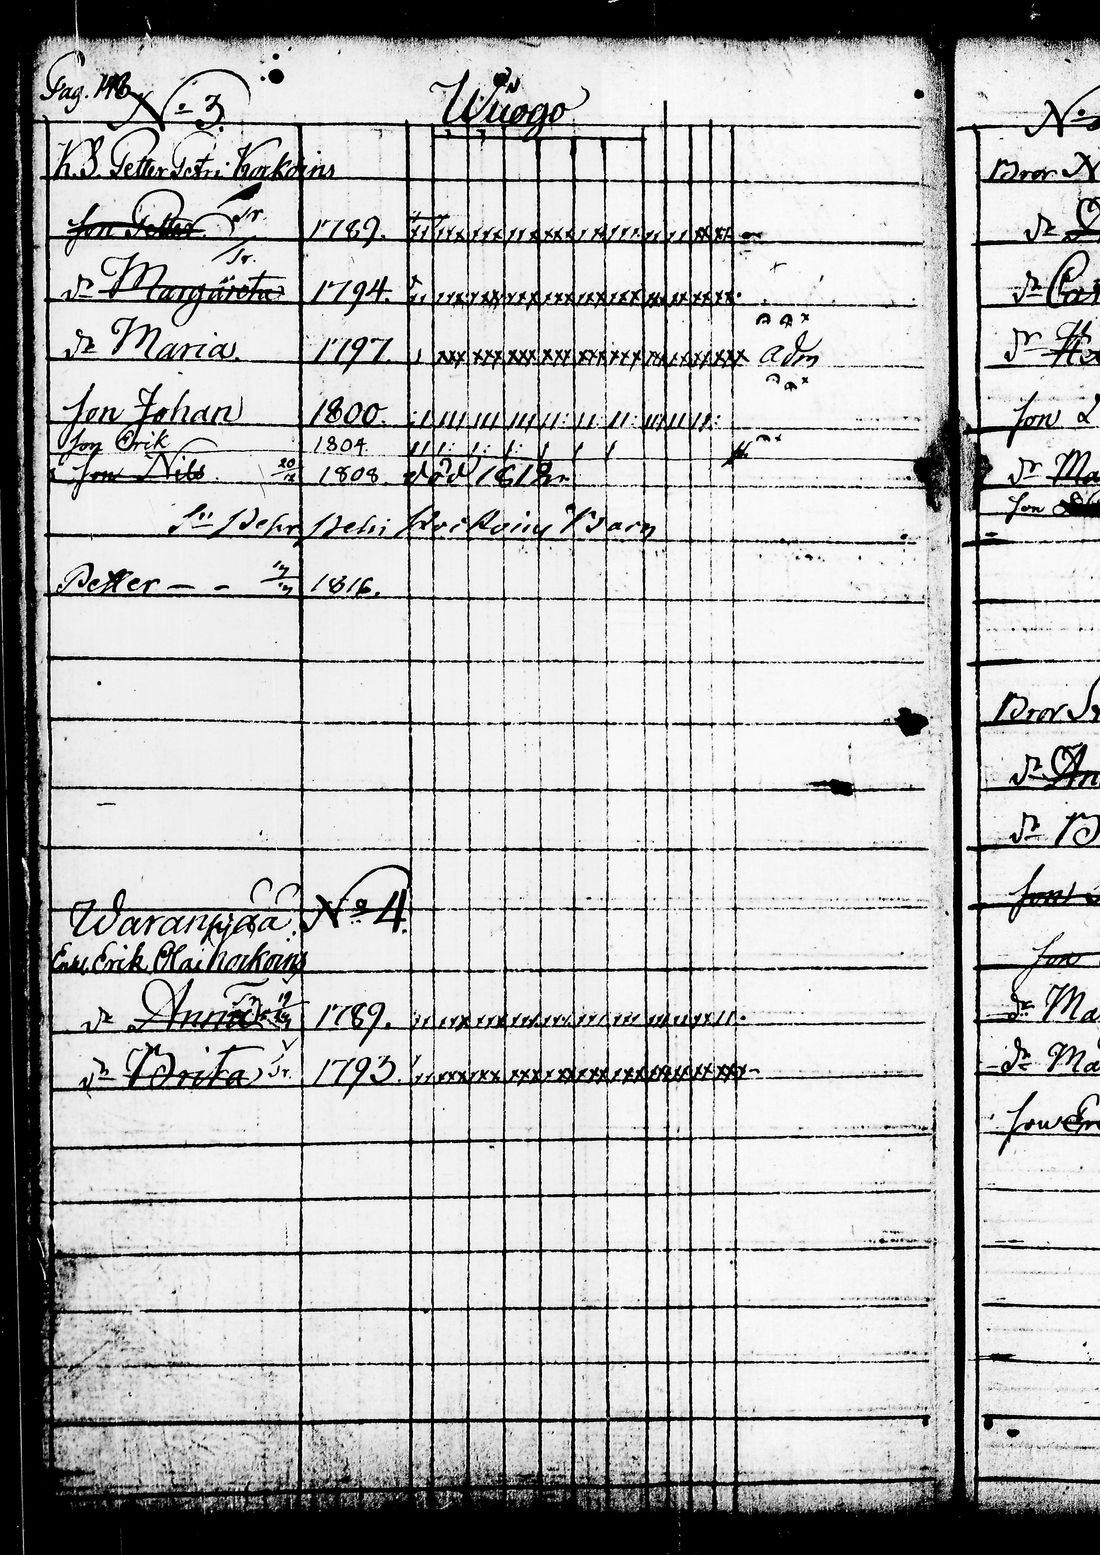 Pag. 113
No 3 Wuogo
K. S. Petter Petri Korkoins
Son Petter Tr. 1789.
dr Margareta Tr. 1794.
dr Maria. 1797 adm
Son Johan 1800.
Son Erik 1804
Son Nils 20/12 1808 död 1812
Petri Korkoins Barn
Petter — - 1816.
Waranpää No 4.
Enkl. Erik Olai Korkoins
dr Anna 19 1789.
dr Brita Tr. 1793.
No
Bror N
dr
dr Ca
dr He
Son
dr Ma
Son
Bror
dr An
dr B
Son
Son
dr Ma
dr Ma
Son Er